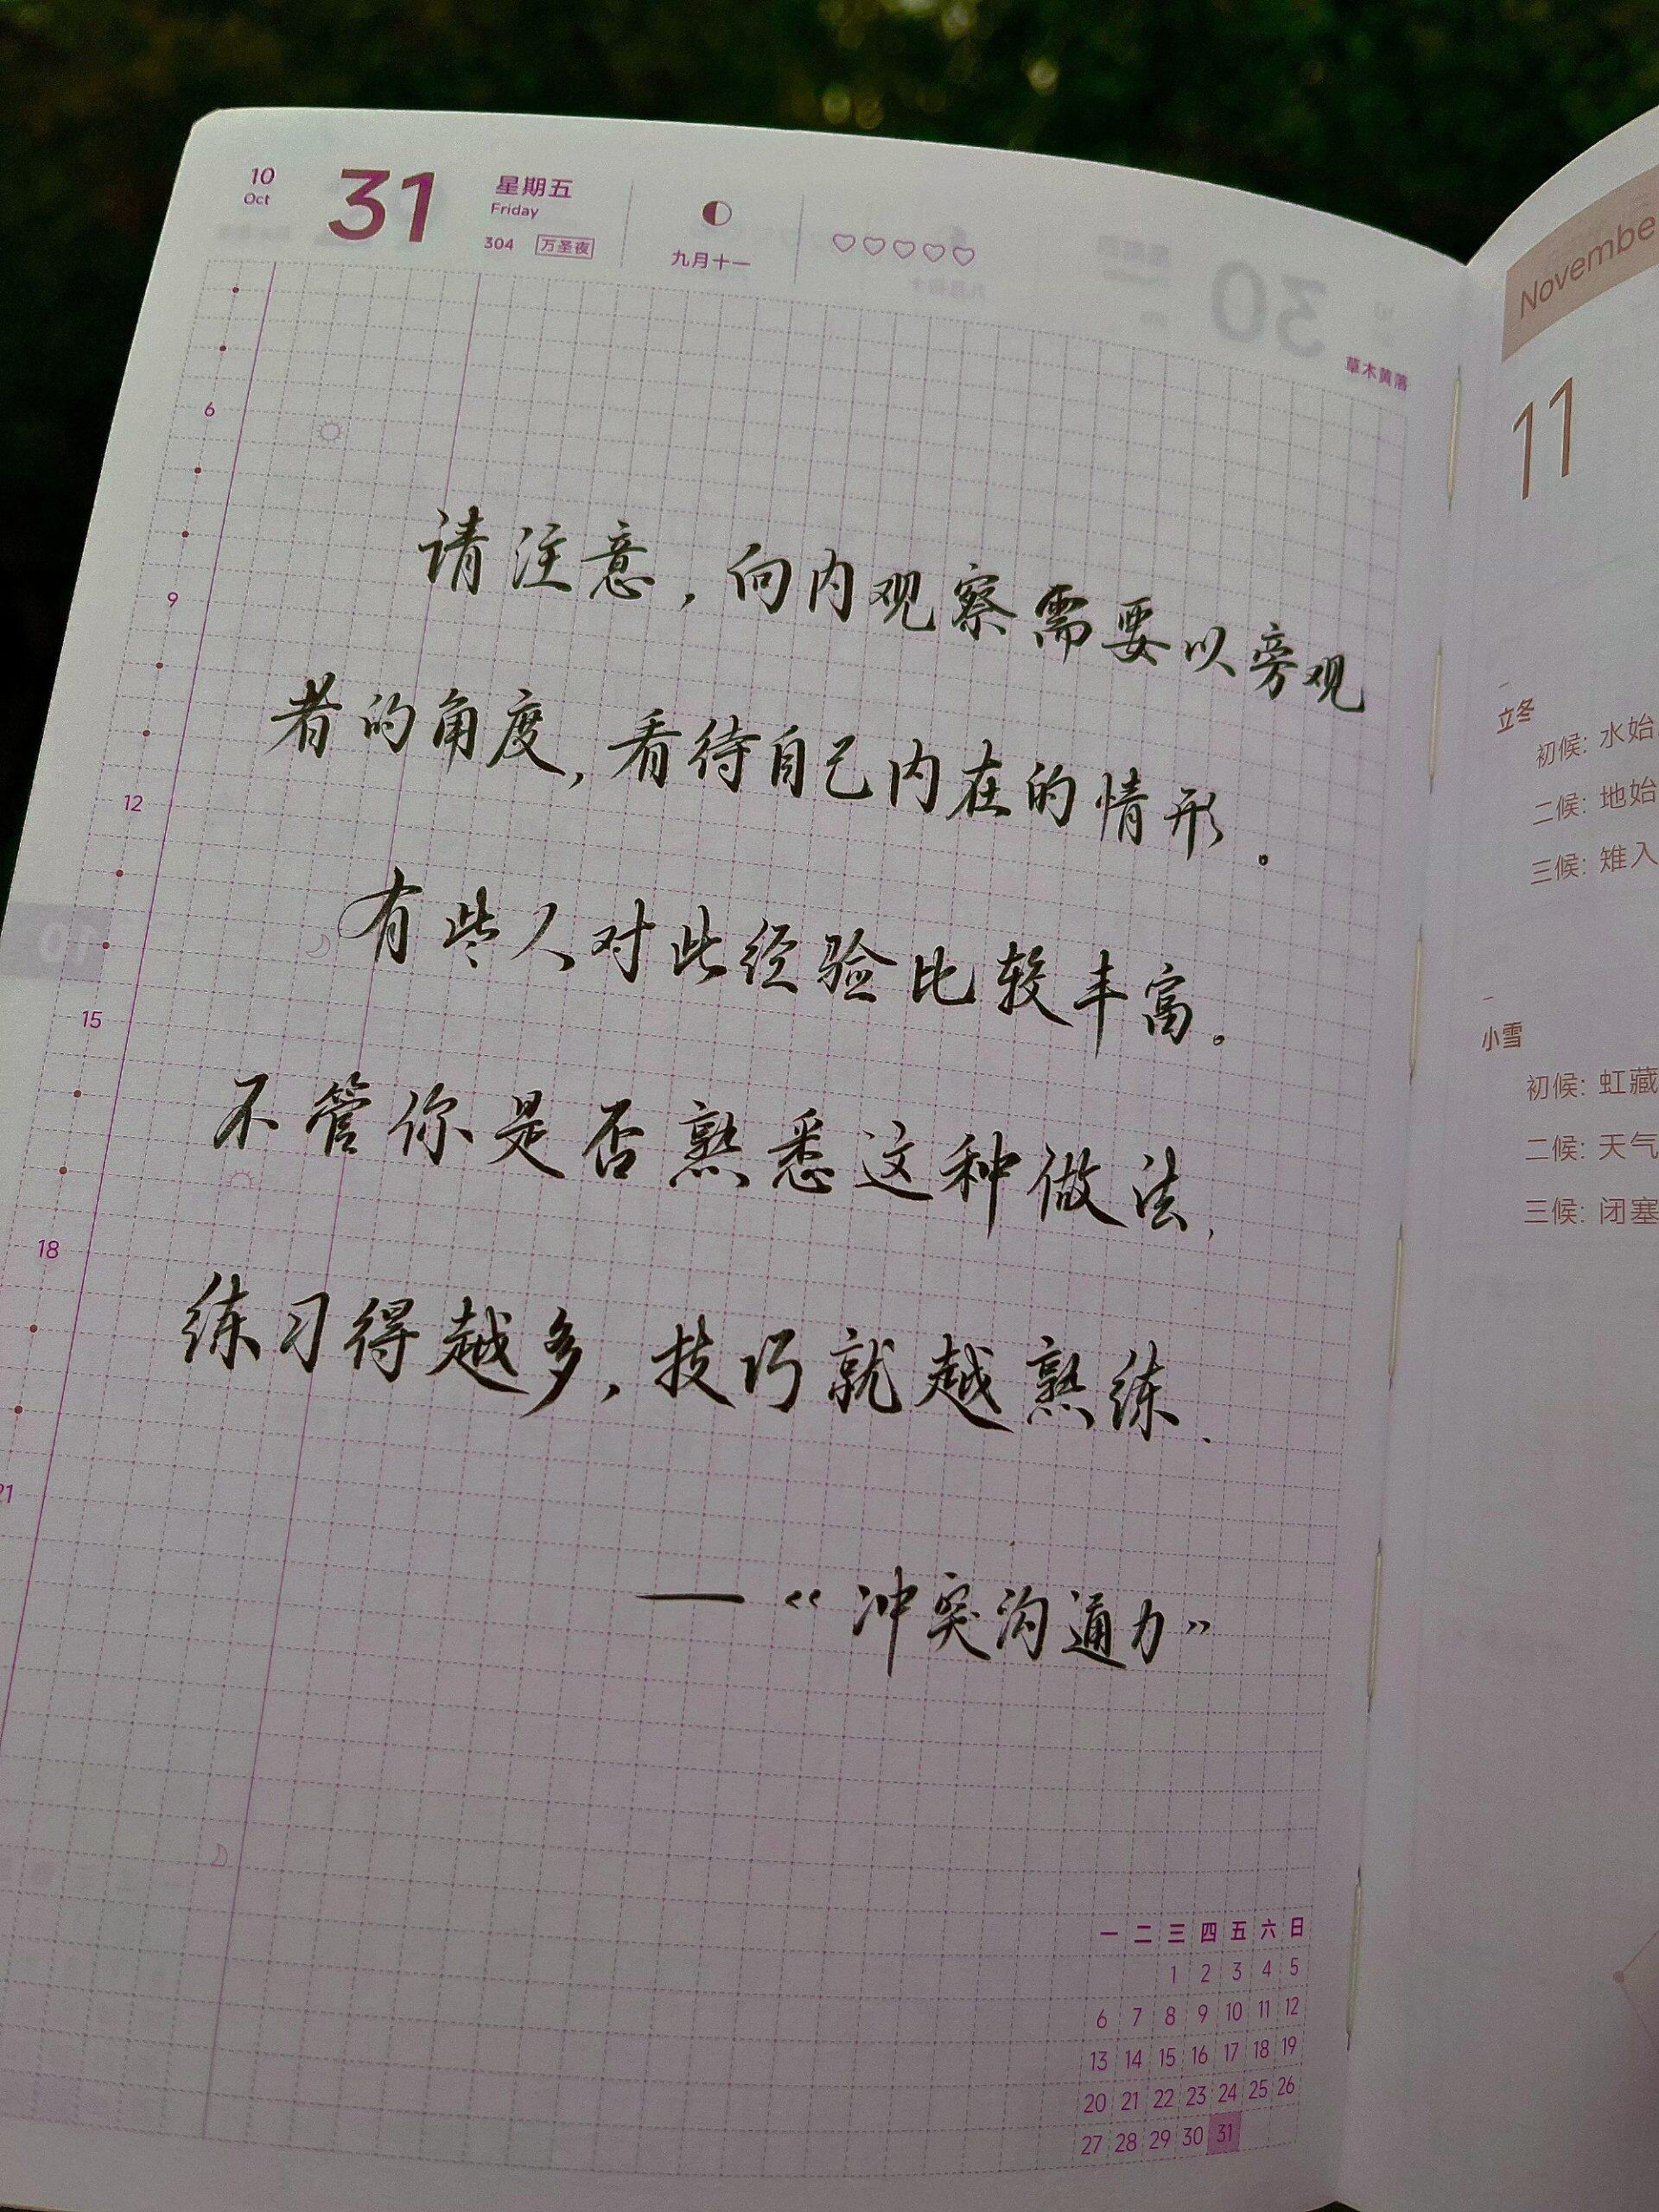 10
Oct
31
星期五
Friday
304 万圣夜
九月十一
草木黄落
6
9
12
15
18
21
请注意,向内观察需要以旁观
者的角度,看待自己内在的情形。
有些人对此经验比较丰富。
不管你是否熟悉这种做法,
练习得越多,技巧就越熟练.
—《冲突沟通力》
一 二 三 四 五 六 日
1 2 3 4 5
6 7 8 9 10 11 12
13 14 15 16 17 18 19
20 21 22 23 24 25 26
27 28 29 30 31
Novembe
11
立冬
初候: 水始
二候: 地始
三候: 雉入
小雪
初候: 虹藏
二候: 天气
三候: 闭塞